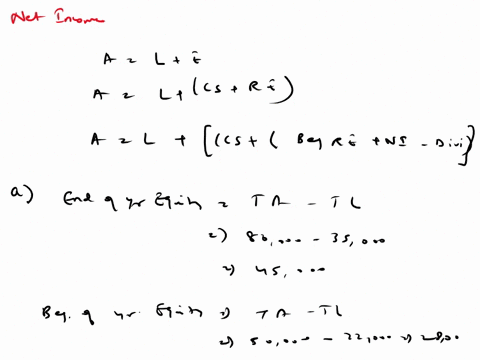 Net Income
A = L + E
A = L + (CS + RE)
A = L + [(CS + ( Beg RE + NI - Divi]
a) End of yr Equity = TA - TL
=) 80,000 - 35,000
=) 45,000
Beg. of yr. Equity =) TA - TL
=) 50,000 - 22,000 =)